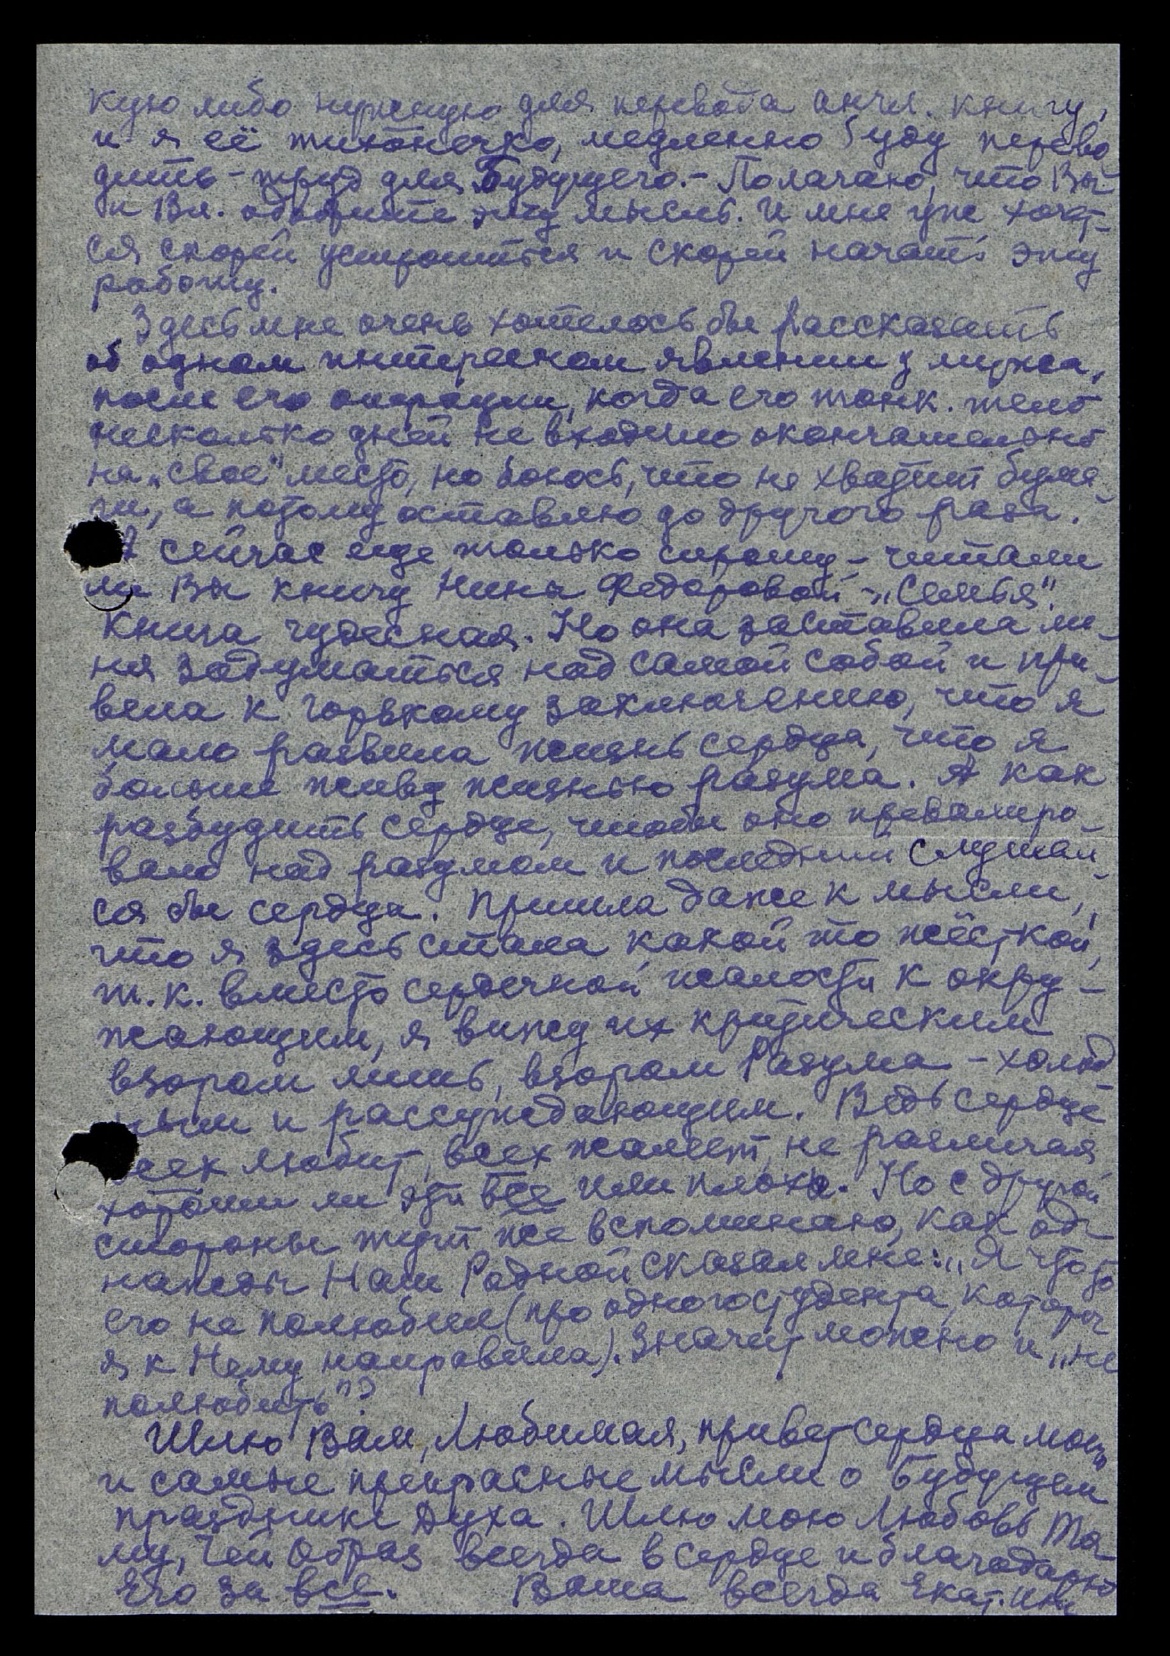 кую либо нужную для перевода англ. книгу,
и я её тихонечко, медленно буду перево
дить – труд для Будущего. – Полагаю, что Вы
и Вл. одобрите эту мысль. И мне уже хочет-
ся скорей устроиться и скорей начать эту
работу.
Здесь мне очень хотелось бы рассказать
об одном интересном явлении у мужа,
после его операции, когда его тонк. тело
несколько дней не входило окончательно
на „свое" место, но боюсь, что не хватит бума-
ги, а потому оставлю до другого раза.
А сейчас еще только спрошу – читали
ли Вы книгу Нины Федоровой – „Семья".
Книга чудесная. Но она заставила ме-
ня задуматься над самой собой и при-
вела к горькому заключению, что я
мало развила жизнь сердца, что я
больше живу жизнью разума. А как
разбудить сердце, чтобы оно превалиро-
вало над разумом и последний слушал-
ся бы сердца. Пришла даже к мысли,
что я здесь стала какой то жёсткой,
т. к. вместо сердечной жалости к окру-
жающим, я вижу их критическим
взором лишь, взором Разума – холод
ным и рассуждающим. Ведь сердце
всех любит, всех жалеет, не различая
хороши ли эти все или плохи. Но с другой
стороны тут же вспоминаю, как од-
нажды Наш Родной сказал мне: „Я что то
его не полюбил (про одного студента, которого
я к Нему направила). Значит можно и „не
полюбить"?
Шлю Вам, Любимая, привет сердца моего
и самые прекрасные мысли о Будущем
празднике Духа. Шлю мою Любовь То-
му, Чей Образ всегда в сердце и благодарю
Его за все. Ваша всегда Екат. Инге